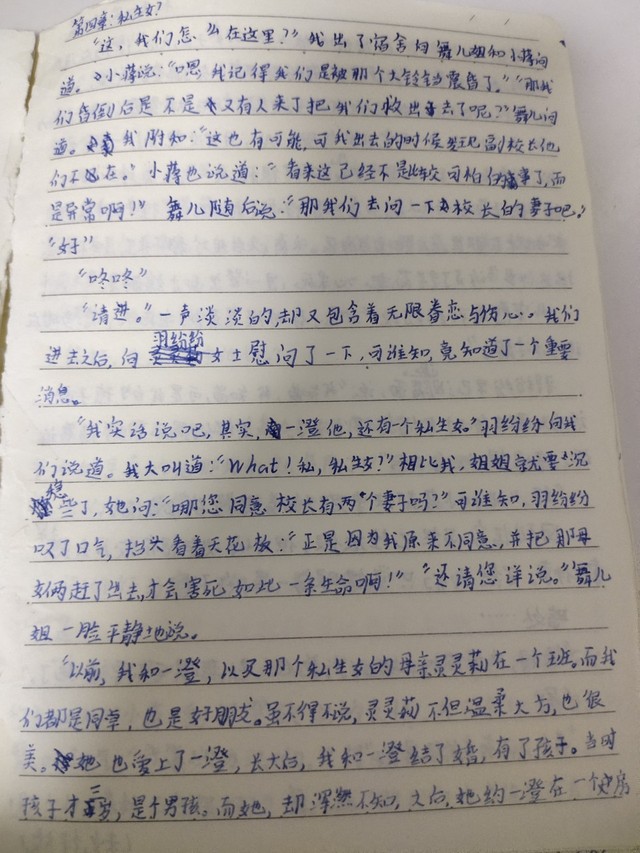 第四章:私生女?
“这,我们怎么在这里?”我出了宿舍向舞儿姐和小蒋问
道。小蒋说:“嗯,我记得我们是被那个大铃铛震昏了。”“那我
们昏倒后是不是又有人来了把我们救出去了呢?”舞儿问
道。我附和:“这也有可能,可我出去的时候发现副校长他
们不在。”小蒋也说道:“看来这已经不是比较可怕的事了,而
是异常啊!”舞儿随后说:“那我们去问一下校长的妻子吧。”
“好”
“咚咚”
“请进。”一声淡淡的,却又包含着无限眷恋与伤心。我们
进去之后,向羽纷纷女士慰问了一下,可谁知,竟知道了一个重要
消息。
“我实话说吧,其实,一澄他,还有一个私生女。”羽纷纷向我
们说道。我大叫道:“What!私,私生女?”相比我,姐姐就要沉
稳些了,她问:“哪您同意校长有两个妻子吗?”可谁知,羽纷纷
叹了口气,抬头看着天花板:“正是因为我原来不同意,并把那母
女俩赶了出去,才会害死如此一条生命啊!”“还请您详说。”舞儿
姐一脸平静地说。
“以前,我和一澄,以及那个私生女的母亲灵灵莉在一个班。而我
们都是同桌,也是好朋友。虽不得不说,灵灵莉不但温柔大方,也很
美。她也爱上了一澄,长大后,我和一澄结了婚,有了孩子。当时
孩子才三岁,是个男孩。而她,却浑然不知,之后,她约一澄在一个